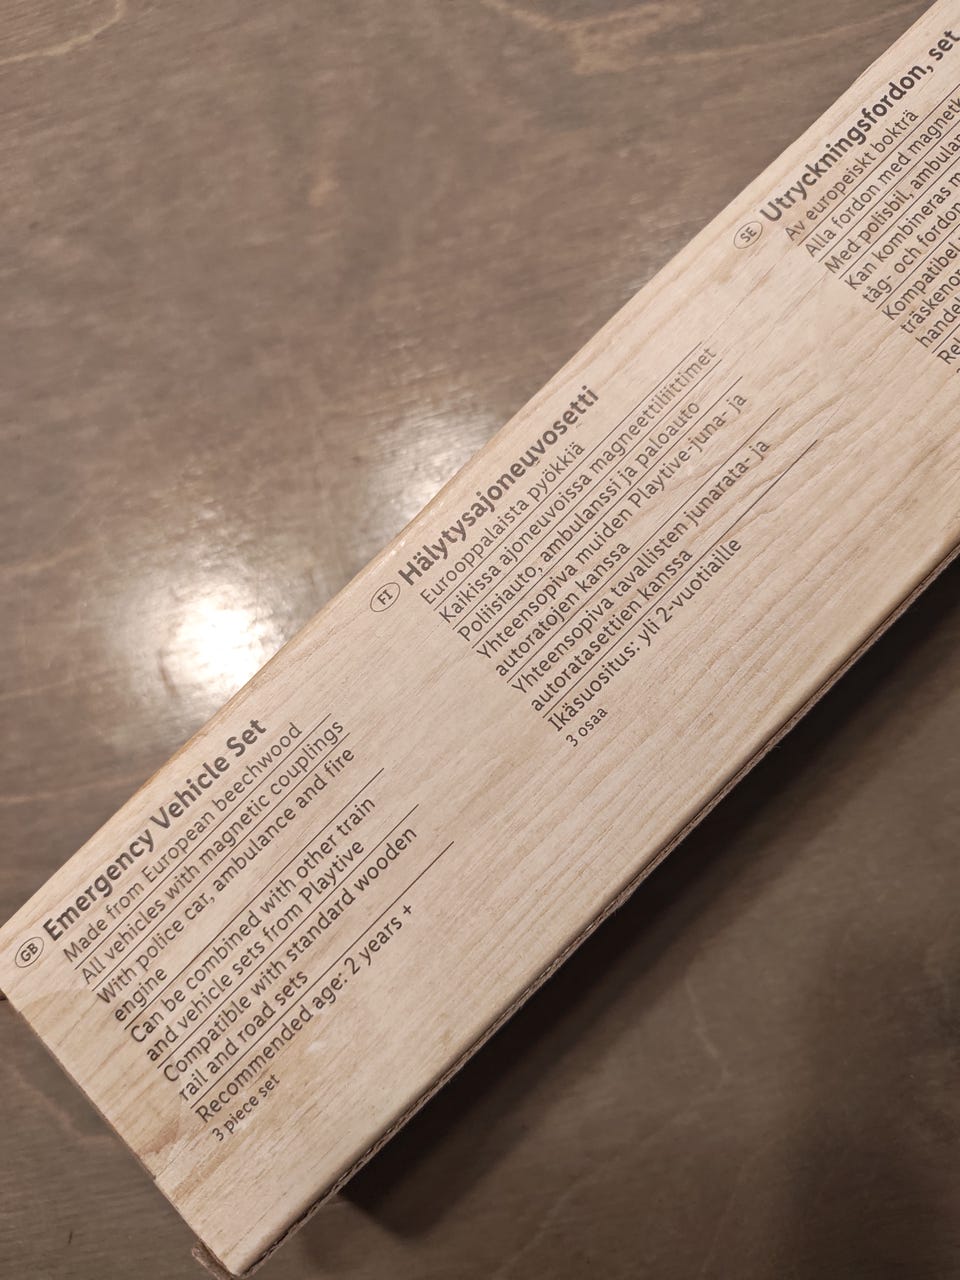 GB Emergency Vehicle Set
Made from European beechwood
All vehicles with magnetic couplings
With police car, ambulance and fire
engine
Can be combined with other train
and vehicle sets from Playtive
Compatible with standard wooden
rail and road sets
Recommended age: 2 years +
3 piece set
FI Hälytysajoneuvosetti
Eurooppalaista pyökkiä
Kaikissa ajoneuvoissa magneettiliittimet
Poliisiauto, ambulanssi ja paloauto
Yhteensopiva muiden Playtive-juna- ja
autoratojen kanssa
Yhteensopiva tavallisten junarata- ja
autoratasettien kanssa
Ikäsuositus: yli 2-vuotiaille
3 osaa
SE Utryckningsfordon, set
Av europeiskt bokträ
Alla fordon med
Med polisbil,
Kan kombineras
tåg- och fordon